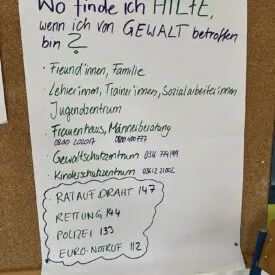 Wo finde ich HILFE,
wenn ich von GEWALT betroffen
bin?
· Freund*innen, Familie
· Lehrer*innen, Trainer*innen, Sozialarbeiter*innen
Jugendzentrum
· Frauenhaus, Männerberatung
0800 202017 0800 400777
· Gewaltschutzzentrum 0316 774199
· Kinderschutzzentrum
· RAT AUF DRAHT 147
· RETTUNG 144
· POLIZEI 133
· EURO-NOTRUF 112